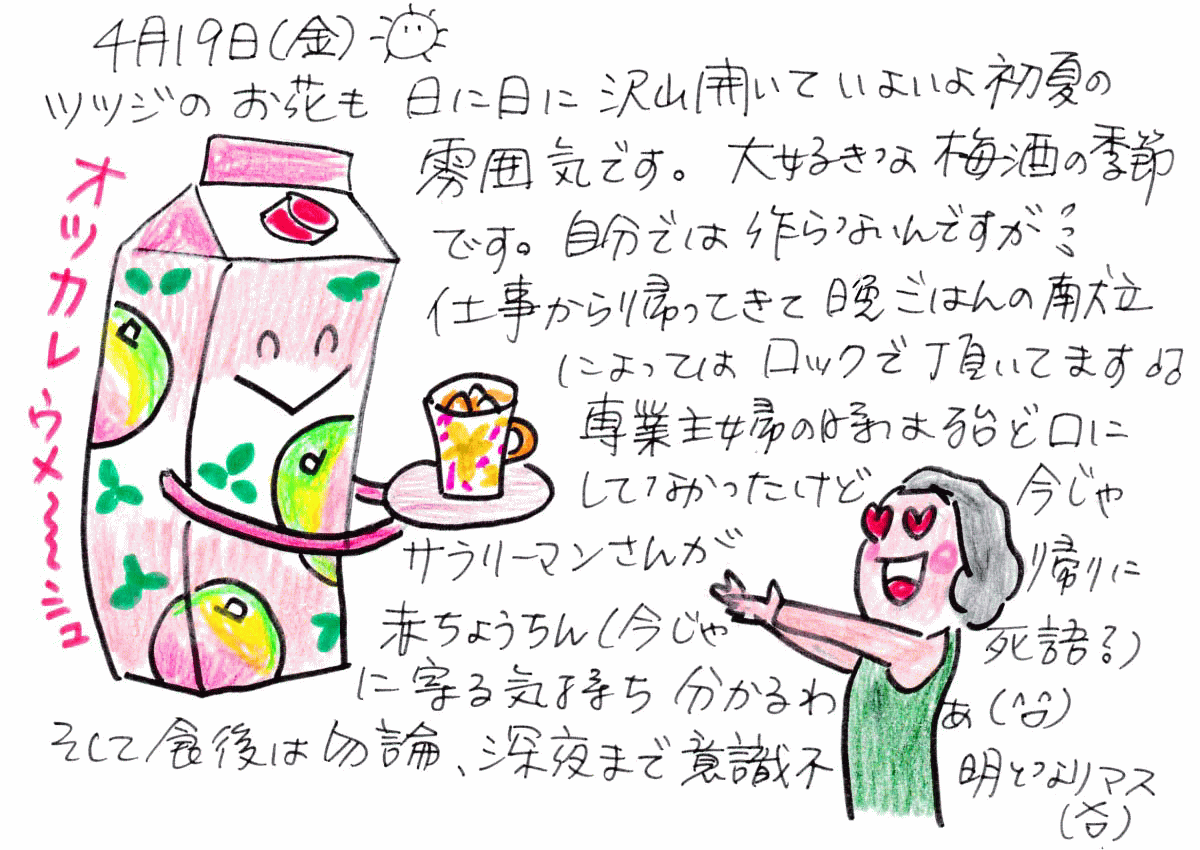 4月19日(金)
ツツジのお花も日に日に沢山開いていよいよ初夏の
雰囲気です。大好きな梅酒の季節
です。自分では作らないんですが
仕事から帰ってきて晩ごはんの献立
によってはロックで頂いてます♪
専業主婦の時は殆ど口に
してなかったけど今じゃ
サラリーマンさんが帰りに
赤ちょうちん(今じゃ死語?)
に寄る気持ち分かるわぁ(^o^)
そして食後は勿論、深夜まで意識不明となりマス
(笑)
オツカレウメ〜〜シュ